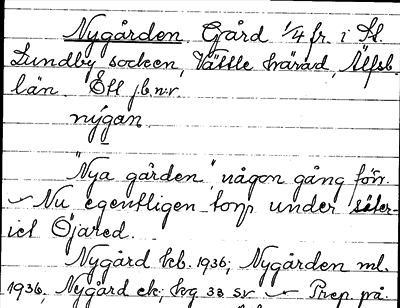 Nygården. Gård 1/4 fr. i St.
Lundby socken, Vättle härad, Älfsb.
län. Ett jb.n:r
nýgan
"Nya gården", någon gång förr.
Nu egentligen torp under säter-
iet Öjared.
Nygård kb. 1936; Nygården ml.
1936, Nygård ek; hsg 33 sv Prep. på.